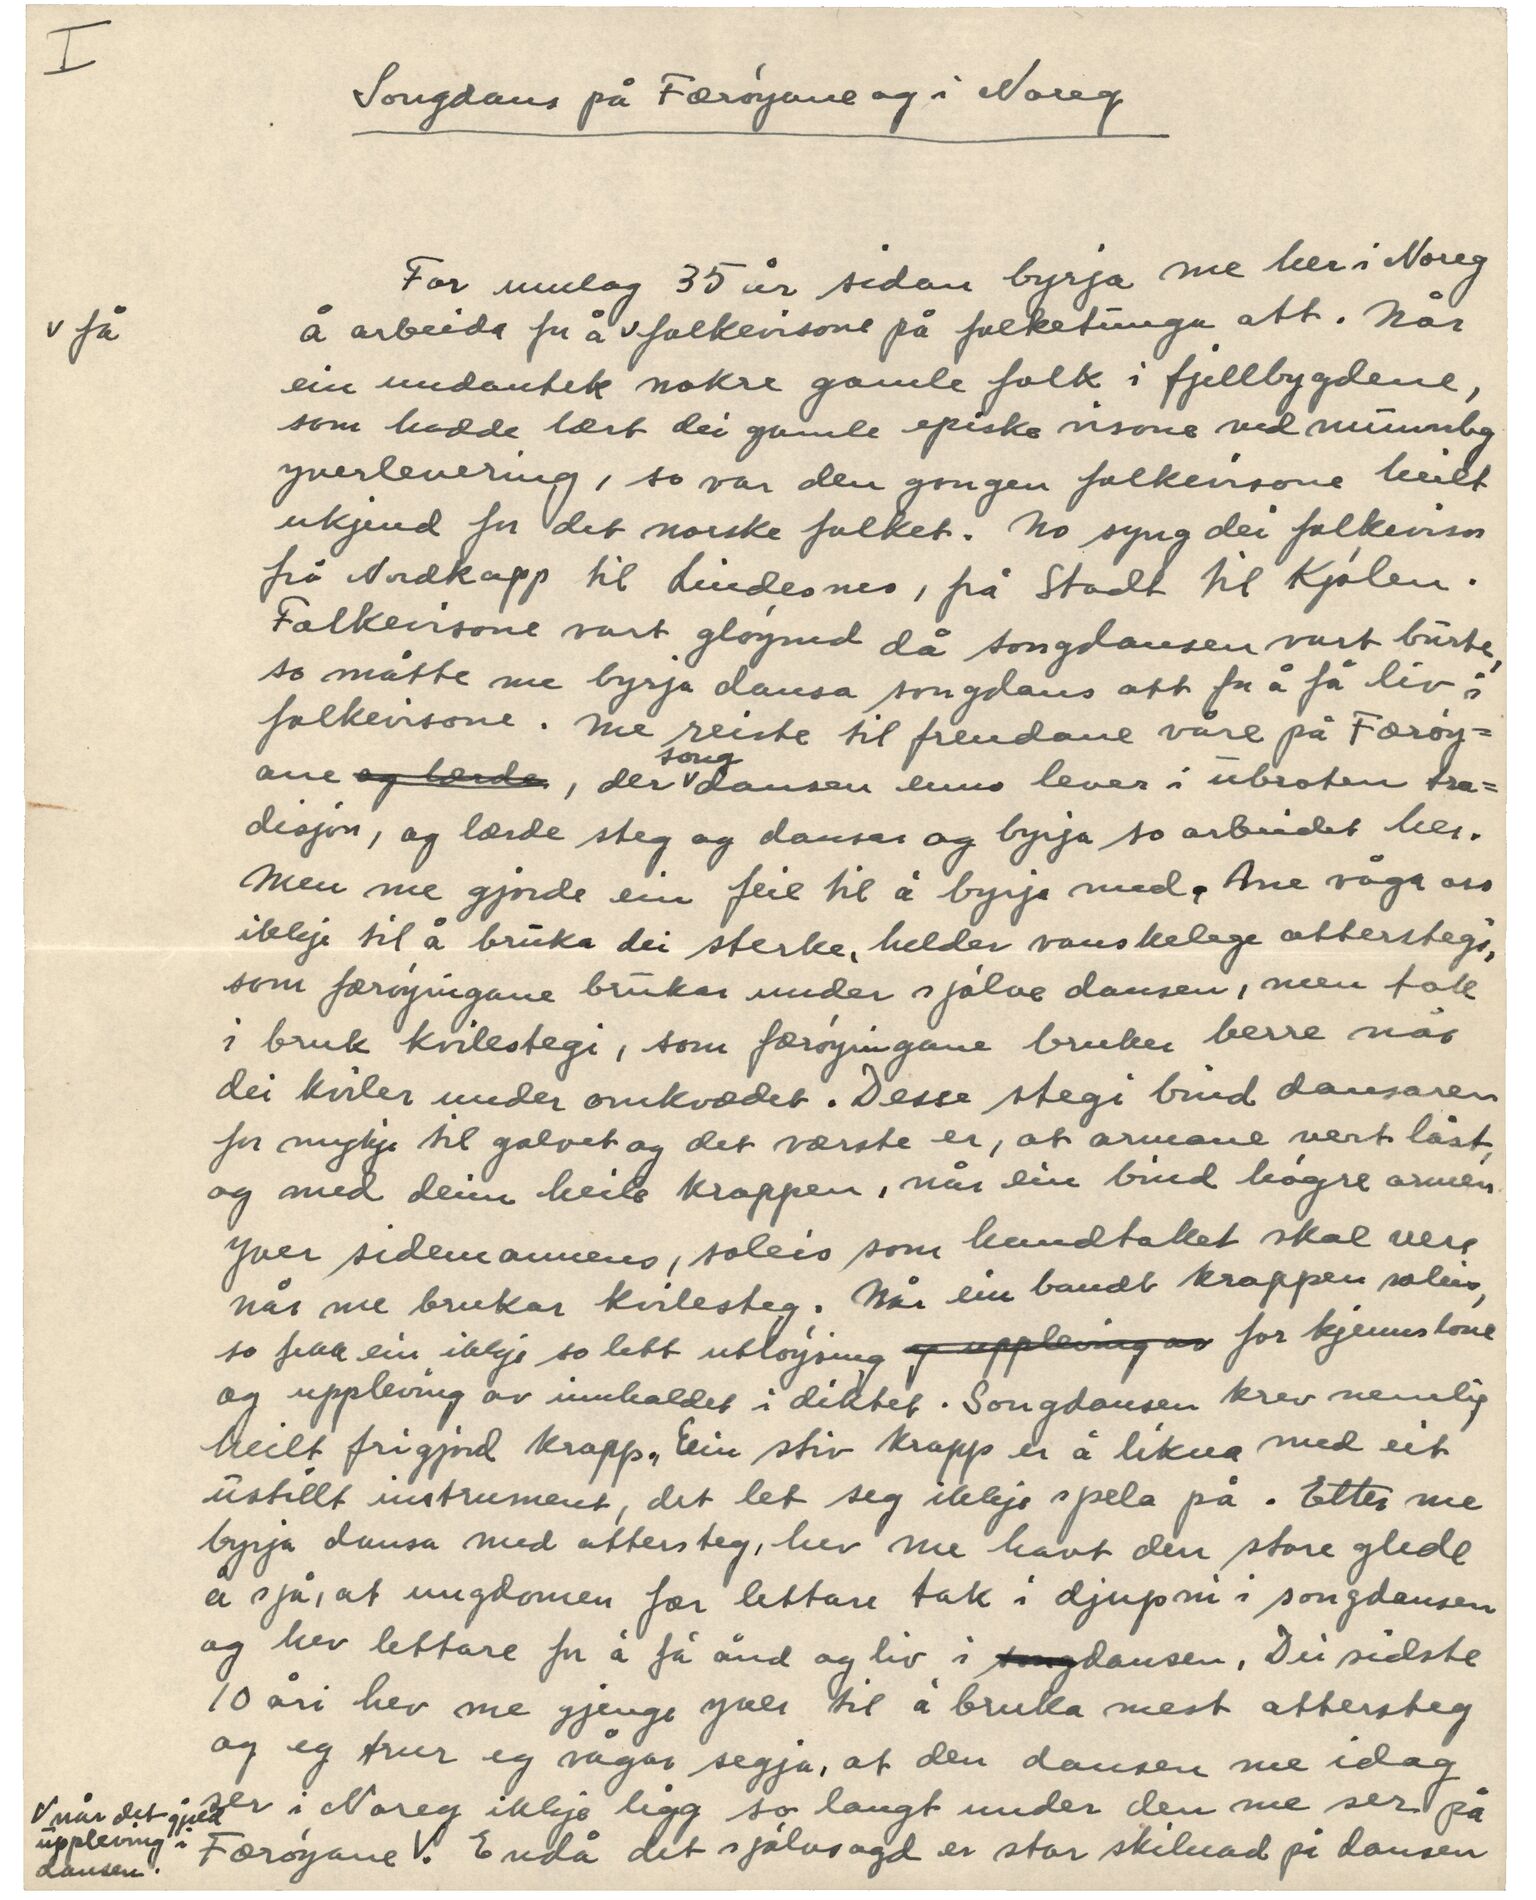 I
Songdans på Færóyane og i Noreg
For umlag 35 år sidan byrja me her i Noreg
v få
å arbeida for å v folkevisone på folketunga att. Når
ein undantek nokre gamle folk i fjellbygdene,
som hadde lært dei gamle episke visone ved munnleg
yverlevering, so var den gongen folkevisone heilt
ukjend for det norske folket. No syng dei folkevisor
frå Nordkapp til Lindesnes, frå Stadt til Kjólen.
Folkevisone vart glóymd då songdansen vart burte,
so måtte me byrja dansa songdans att for å få liv i
folkevisone. Me reiste til frendane våre på Færóy=
ane og lærde, der v song dansen enno lever i ubroten tra=
disjón, og lærde steg og dansar og byrja so arbeidet her.
Men me gjorde ein feil til å byrja med, me våga oss
ikkje til å bruka dei sterke, helder vanskelege attersteg,
som færóyingane brukar under sjólve dansen, men tok
i bruk kvilestegi, som færóyingane brukar berre når
dei kviler under omkvædet. Desse stegi bind dansaren
for mykje til golvet og det værste er, at armane vert låst,
og med deim heile kroppen, når ein bind hógre armen
yver sidemannens, soleis som handtaket skal vera
når me brukar kvilesteg. Når ein bandt kroppen soleis,
so fekk ein ikkje so lett utlóysing og uppleving av for kjenslone
og uppleving av innhaldet i diktet. Songdansen krev nemlig
heilt frigjord kropp. Ein stiv kropp er å likna med eit
ustillt instrument, det let seg ikkje spela på. Etter me
byrja dansa med attersteg, hev me havt den store glede
å sjå, at ungdomen fær lettare tak i djupni i songdansen
og hev lettare for å få ånd og liv i songdansen. Dei sidste
10 åri hev me gjenge yver til å bruka mest attersteg
og eg trur eg vågar segja, at den dansen me idag
ser i Noreg ikkje ligg so langt under den me ser på
Færóyane V. Endå det sjólvsagd er stor skilnad på dansen
V når det gjeld
uppleving i
dansen.